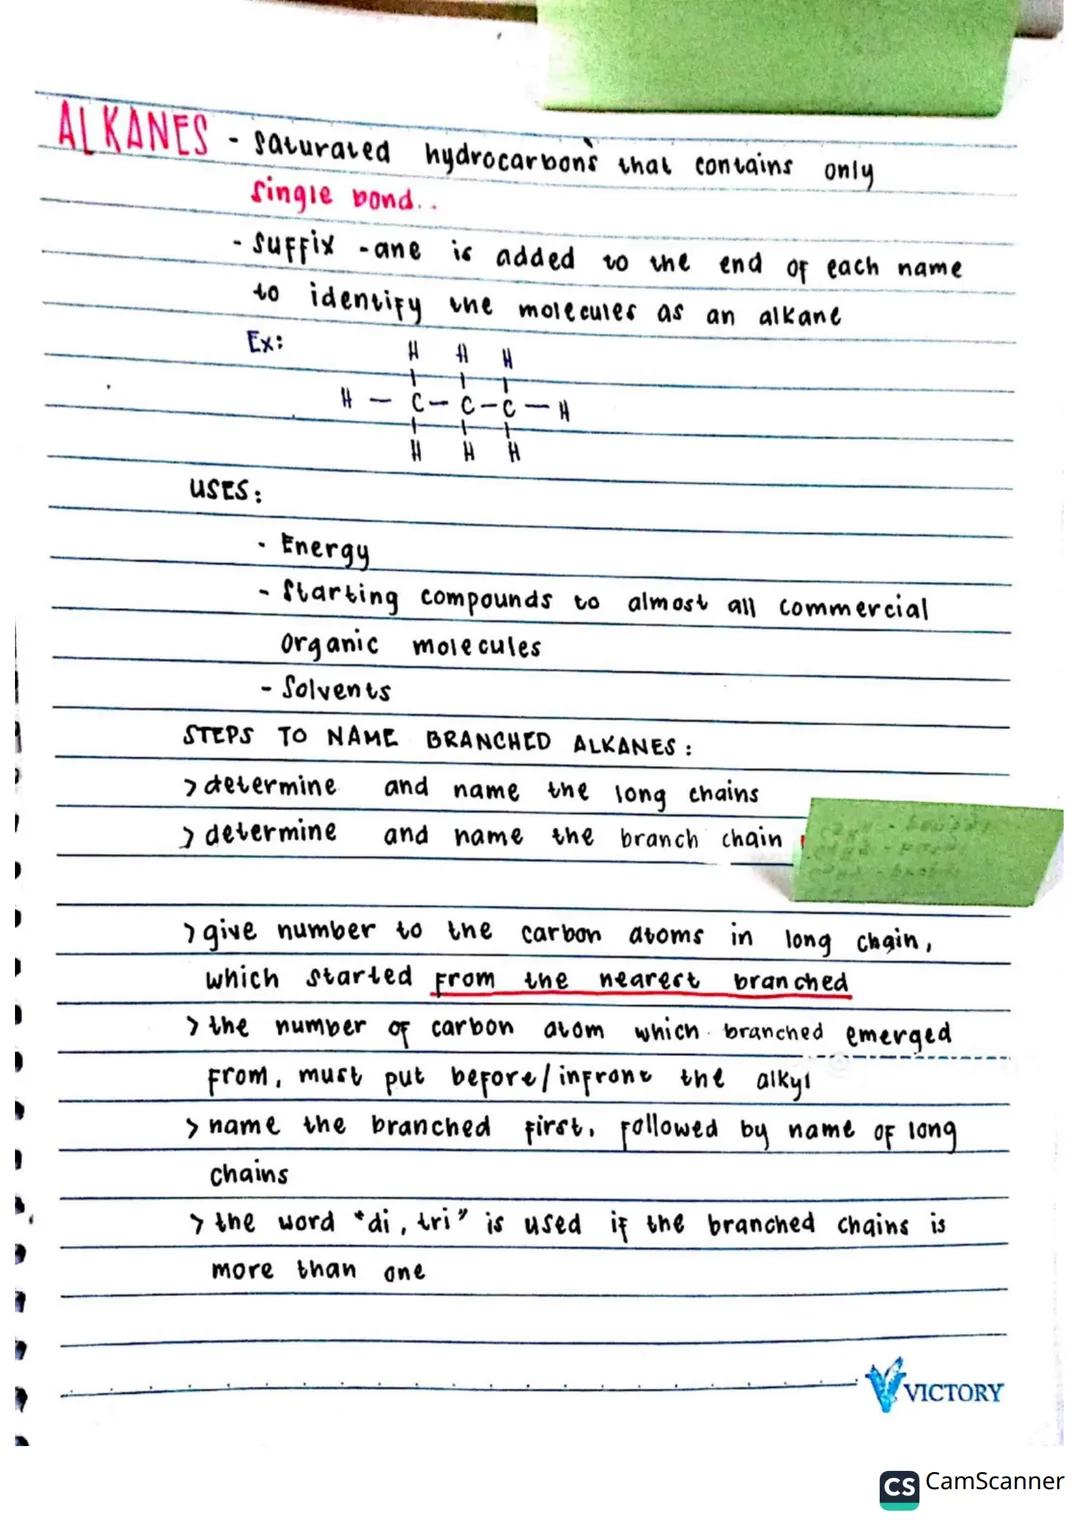 ALKANES - saturated hydrocarbons that contains only
single bond..
- suffix -ane is added to the end of each name
to identify the molecules as an alkane
Ex:
H H H
H - C - C - C - H
H H H
USES:
- Energy
- Starting compounds to almost all commercial
organic molecules
- Solvents
STEPS TO NAME BRANCHED ALKANES:
> determine and name the long chains
> determine and name the branch chain
> give number to the carbon atoms in long chain,
which started from the nearest branched
> the number of carbon atom which branched emerged
from, must put before/infront the alkyl
> name the branched first, followed by name of long
chains
> the word "di, tri" is used if the branched chains is
more than one
VICTORY
CS CamScanner